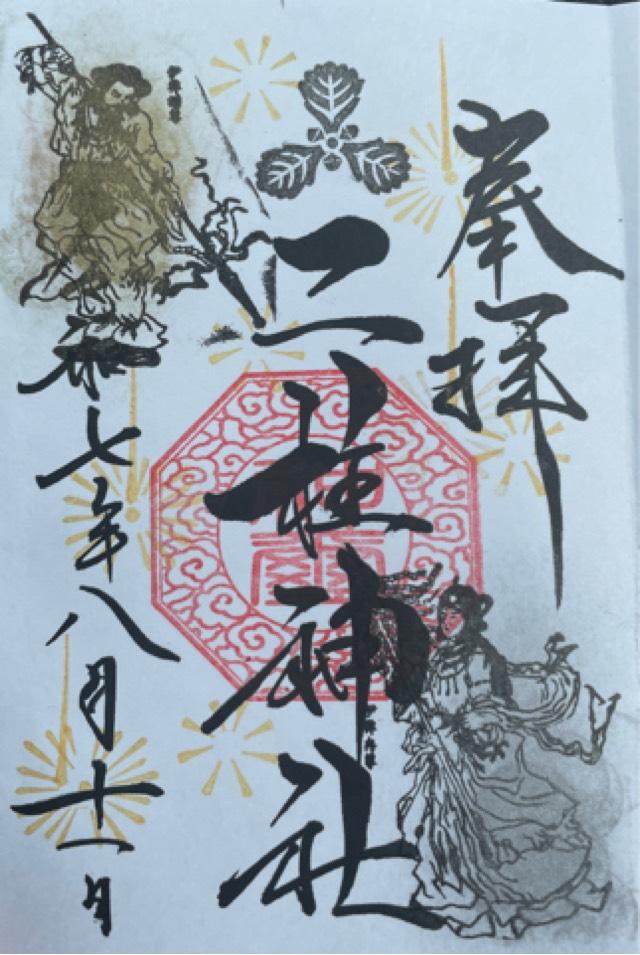 奉拝
二柱神社
令和七年八月十一日